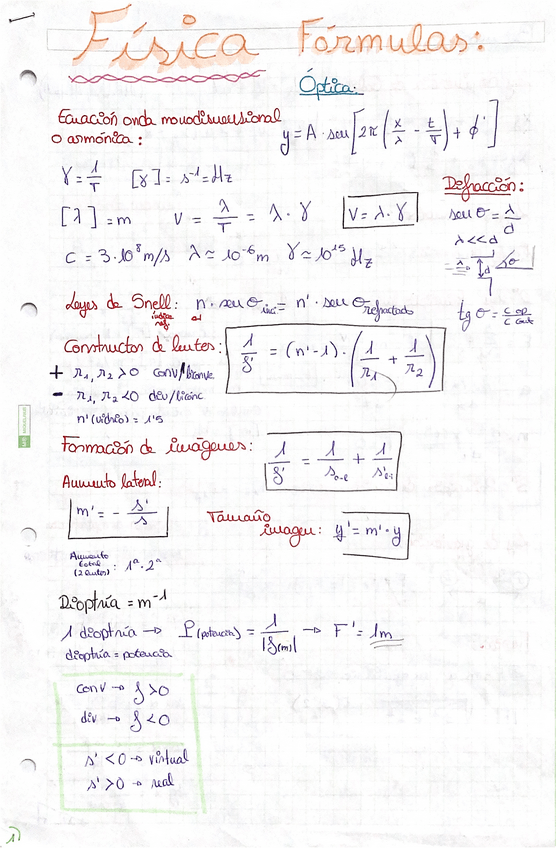 Física Fórmulas:
Óptica.
Ecuación onda monodimensional
o armónica:
y = A · sen [2π (x/λ - t/T) + ϕ]
γ = 1/T [γ] = s⁻¹ = Hz
[λ] = m v = λ/T = λ · γ
v = λ · γ
c = 3·10⁸ m/s λ ≃ 10⁻⁶ m γ ≃ 10¹⁵ Hz
Defracción:
sen σ = λ/d
λ << d
d
σ
tg σ = c op/c cont
Leyes de Snell: n · sen σ inc. = n' · sen σ refractado
índice
ref.
Constructor de lentes:
1/f' = (n'-1) · (1/r₁ + 1/r₂)
+ r₁, r₂ > 0 conv/biconve
- r₁, r₂ < 0 div/bicónc
n' (vidrio) = 1'5
Formación de imágenes:
1/f' = 1/s o-l + 1/s' l-i
Aumento lateral:
m' = - s'/s
Tamaño
imagen: y' = m' · y
Aumento
total
(2 lentes) : 1ª · 2ª
Dioptría = m⁻¹
1 dioptría → P (potencia) = 1/|f(m)| → F' = 1m
dioptría = potencia
conv → f > 0
div → f < 0
s' < 0 → virtual
s' > 0 → real
1